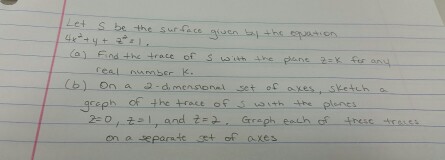 Let S be the surface given by the equation
4x²+y+z²=1.
(a) Find the trace of S with the plane z=k for any
real number k.
(b) On a 2-dimensional set of axes, sketch a
graph of the trace of S with the planes
z=0, z=1, and z=2. Graph each of these traces
on a separate set of axes